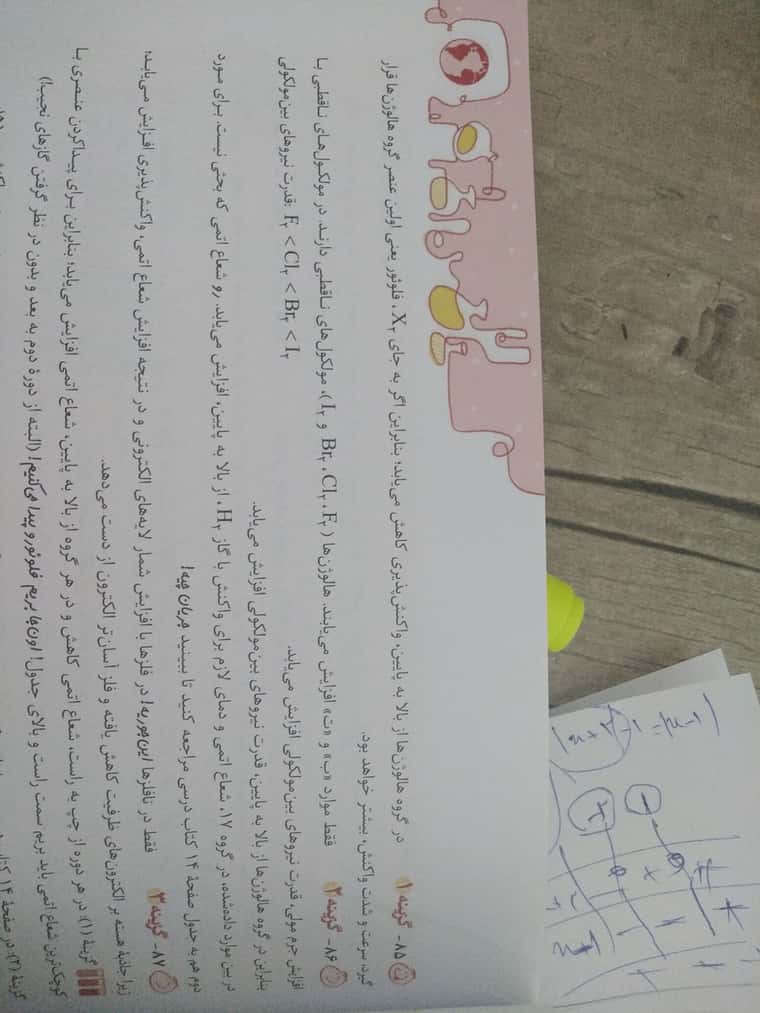 ۸۵- گزینه ۱ در گروه هالوژن‌ها از بالا به پایین، واکنش‌پذیری کاهش می‌یابد؛ بنابراین اگر به جای X۲، فلوئور یعنی اولین عنصر گروه هالوژن‌ها قرار
گیرد، سرعت و شدت واکنش، بیشتر خواهد بود.
۸۶- گزینه ۲ فقط موارد «ب» و «ت» افزایش می‌یابند. هالوژن‌ها (F۲، Cl۲، Br۲ و I۲)، مولکول‌های ناقطبی دارند. در مولکول‌های ناقطبی با
افزایش جرم مولی، قدرت نیروهای بین‌مولکولی افزایش می‌یابد. F۲ < Cl۲ < Br۲ < I۲ :قدرت نیروهای بین‌مولکولی
بنابراین در گروه هالوژن‌ها از بالا به پایین، قدرت نیروهای بین‌مولکولی افزایش می‌یابد.
در بین موارد داده‌شده، در گروه ۱۷، شعاع اتمی و دمای لازم برای واکنش با گاز H۲، از بالا به پایین، افزایش می‌یابد. رو شعاع اتمی که بحثی نیست. برای مورد
دوم هم به جدول صفحهٔ ۱۴ کتاب درسی مراجعه کنید تا ببینید جریان چیه!
۸۷- گزینه ۳ فقط در نافلزها این‌جوریه! در فلزها با افزایش شمار لایه‌های الکترونی و در نتیجه افزایش شعاع اتمی، واکنش‌پذیری افزایش می‌یابد؛
زیرا جاذبهٔ هسته بر الکترون‌های ظرفیت کاهش یافته و فلز آسان‌تر الکترون از دست می‌دهد.
گزینهٔ (۱): در هر دوره از چپ به راست، شعاع اتمی کاهش و در هر گروه از بالا به پایین، شعاع اتمی افزایش می‌یابد؛ بنابراین برای پیداکردن عنصری با
کوچک‌ترین شعاع اتمی باید بریم سمت راست و بالای جدول! اون‌جا بریم فلوئور و پیدا می‌کنیم! (البته از دورهٔ دوم به بعد و بدون در نظر گرفتن گازهای نجیب!)
گزینهٔ (۲): در صفحهٔ ۱۴ کتاب